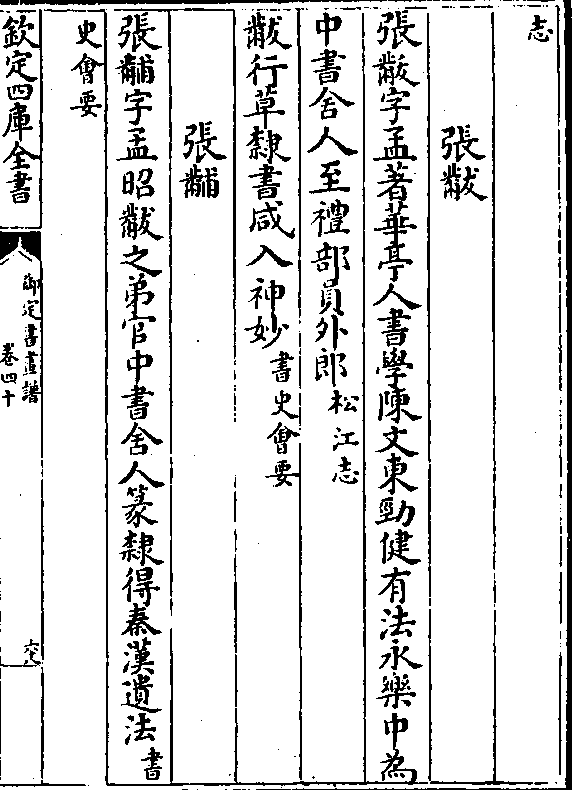 志
張黻
張黻字孟著華亭人書學陳文東勁健有法永樂中為
中書舍人至禮部員外郎松江志
黻行草隸書咸入神妙書史會要
張黼
張黼字孟昭黻之弟官中書舍人篆隸得秦漢遺法書
史會要
欽定四庫全書
御定書畫譜
卷四十
六